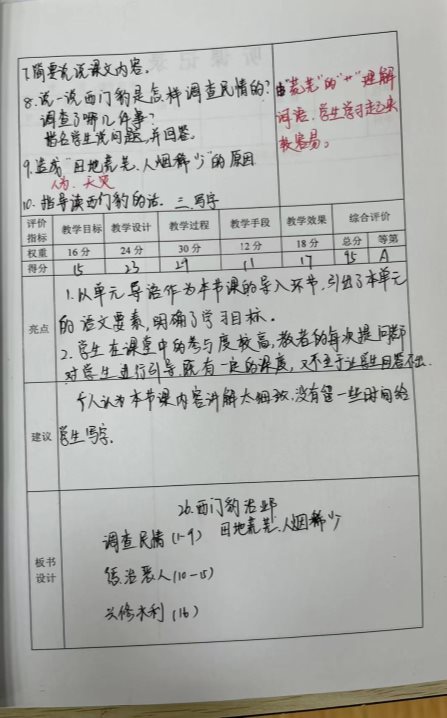 7.简要先说课文内容。
8.说一说西门豹是怎样调查民情的?
调查了哪几件事?
指名学生说问题,并回答。
9.造成"田地荒芜、人烟稀少"的原因
人为、天灾
10.指导读西门豹的话. 三.写字
由"荒芜"的"艹"理解
词语,学生学习起来
较容易。
评价指标 教学目标 教学设计 教学过程 教学手段 教学效果 综合评价
权重 16分 24分 30分 12分 18分 总分 等第
得分 15 23 29 11 17 95 A
亮点
1.从单元导语作为本节课的导入环节,引出了本单元
的语文要素,明确了学习目标.
2.学生在课堂中的参与度较高,教者的每次提问都
对学生进行引导,既有一定的深度,又不至于让学生回答不出.
建议
个人认为本节课内容讲解太细致,没有留一些时间给
学生写字.
板书设计
26.西门豹治邺
调查民情(1-9) 田地荒芜、人烟稀少
惩治恶人(10-15)
兴修水利(16)